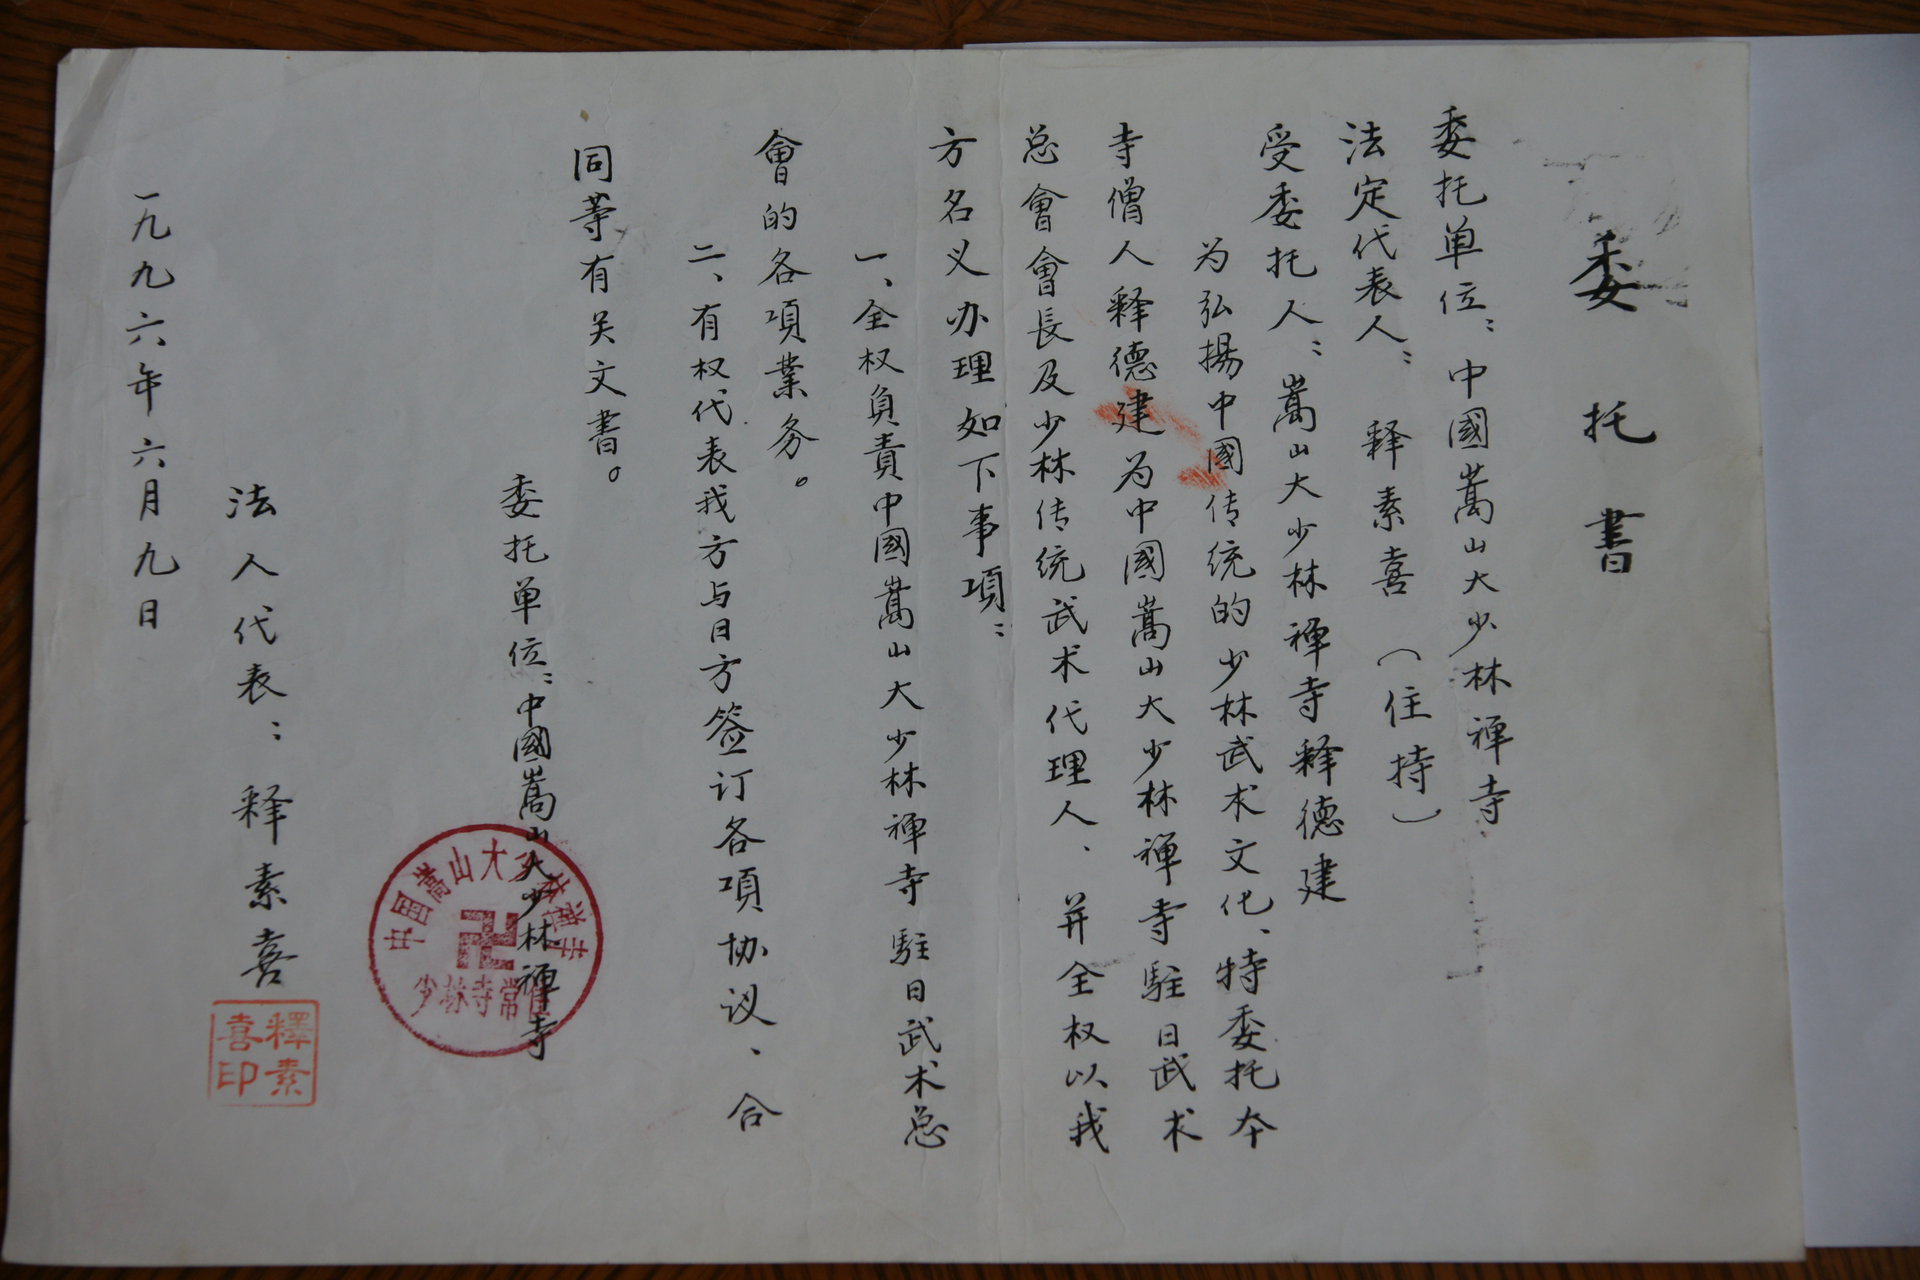 委托書
委托单位：中國嵩山大少林禅寺
法定代表人：释素喜（住持）
受委托人：嵩山大少林禅寺释德建
为弘揚中國传统的少林武术文化、特委托本
寺僧人释德建为中國嵩山大少林禅寺駐日武术
总會會長及少林传统武术代理人、并全权以我
方名义办理如下事項：
一、全权負責中國嵩山大少林禅寺駐日武术总
會的各項業务。
二、有权代表我方与日方签订各項协议、合
同等有关文書。
委托单位：中國嵩山大少林禅寺
中国嵩山大少林禅寺
卍
少林寺常住
法人代表：释素喜
釋素
喜印
一九九六年六月九日